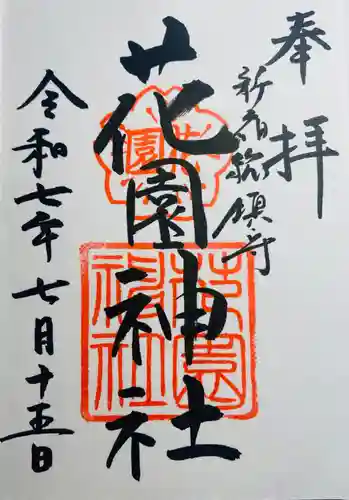 奉拝
新宿総鎮守
花園神社
令和七年七月十五日
花園
花園神社